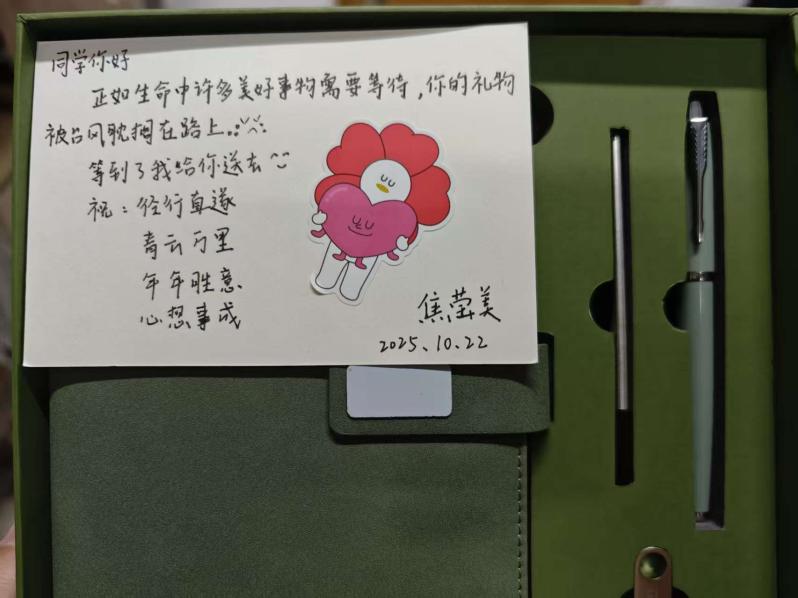 同学你好
正如生命中许多美好事物需要等待,你的礼物
被台风耽搁在路上。
等到了我给你送去
祝:径行直遂
青云万里
年年胜意
心想事成
焦莹美
2025.10.22